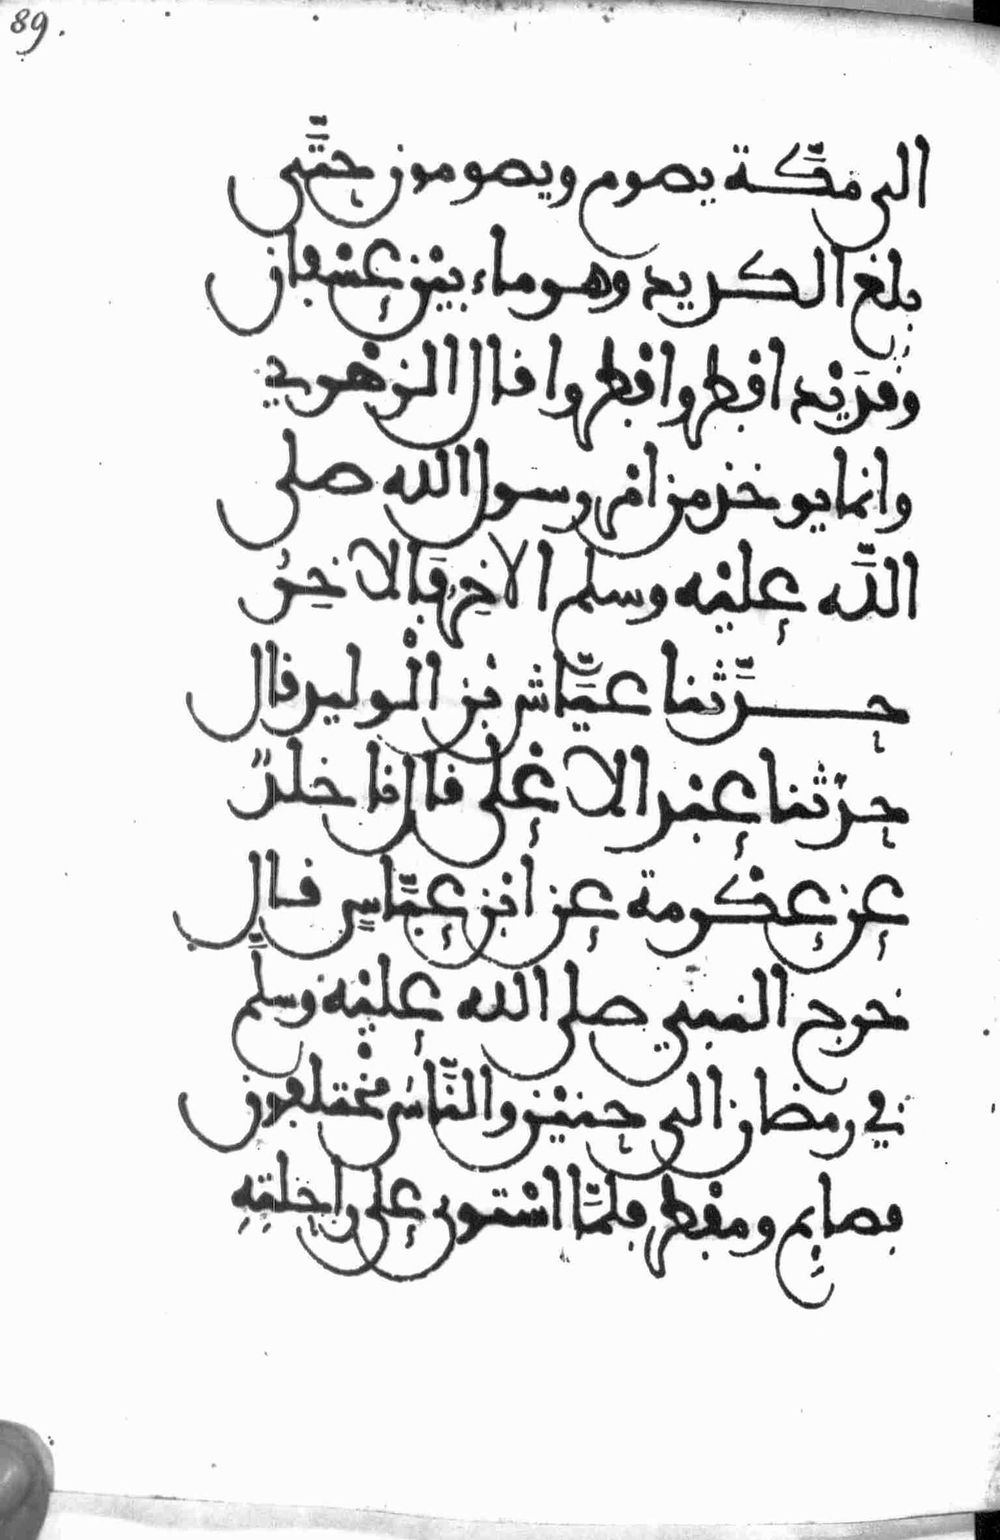 89.
الى مكّة يصوم ويصومون حتّى
بلغ الكديد وهو ماء بين عسفان
وقديد افطر وافطروا قال الزهري
وانما يوخذ من امر رسول الله صلى
الله عليه وسلم الاخر فالاخر
حدّثنا عيّاش بن الوليد قال
حدثنا عبد الاعلى قال نا خلد
عن عكرمة عن ابن عبّاس قال
خرج النبي صلى الله عليه وسلّم
في رمضان الى حنين والنّاس مختلفون
فصايم ومفطر فلمّا استوى على راحلته